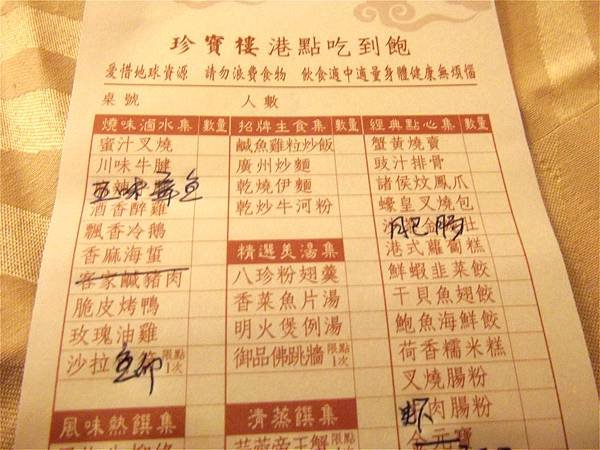 珍寶樓港點吃到飽
愛惜地球資源 請勿浪費食物 飲食適中適量身體健康無煩惱
桌號 人數
燒味滷水集 數量
蜜汁叉燒
川味牛腱
五味章魚
酒香醉雞
飄香冷鵝
香麻海蜇
客家鹹豬肉
脆皮烤鴨
玫瑰油雞
沙拉魚卵 限點1次
風味熱饌集
招牌主食集 數量
鹹魚雞粒炒飯
廣州炒麵
乾燒伊麵
乾炒牛河粉
精選美湯集
八珍粉翅羹
香菜魚片湯
明火煲例湯
御品佛跳牆 限點1次
清蒸饌集
蒜蓉帝王蟹 限點
經典點心集 數量
蟹黃燒賣
豉汁排骨
諸侯炆鳳爪
蠔皇叉燒包
肥腸
港式蘿蔔糕
鮮蝦韭菜餃
干貝魚翅餃
鮑魚海鮮餃
荷香糯米糕
叉燒腸粉
蝦肉腸粉
金元寶